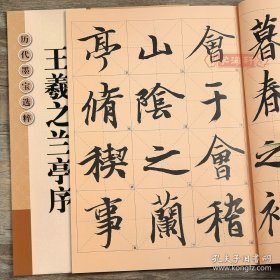 暮春
會于會稽
山陰之蘭
亭脩稧事
历代墨宝选粹
王羲之兰亭序